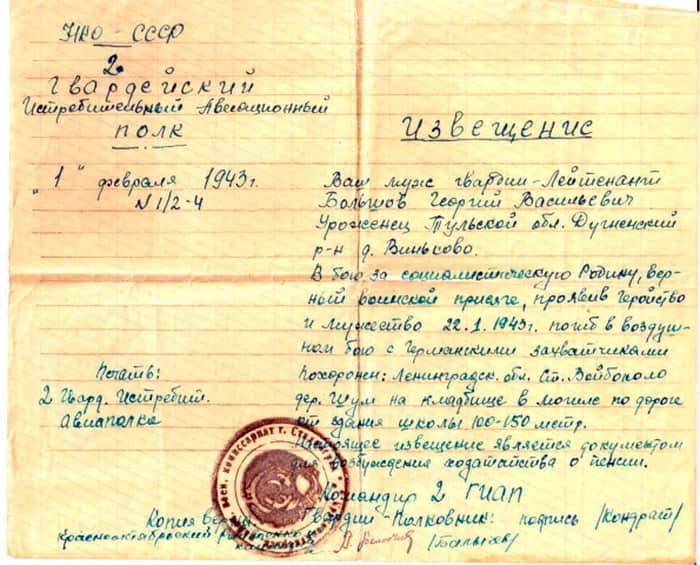 НКО - СССР
2
Гвардейский
Истребительный Авиационный
полк
"1" февраля 1943г.
N 1/2-4
Извещение
Ваш муж гвардии-Лейтенант
Большов Георгий Васильевич
Уроженец Тульской обл. Дугненский
р-н д. Виньково.
В бою за социалистическую Родину, вер-
ный воинской присяге, проявив геройство
и мужество 22.1.1943г. погиб в воздуш-
ном бою с Германскими захватчиками
Похоронен: Ленинградск. обл. Ст. Войбокало
дер. Шум на кладбище в могиле по дороге
от здания школы 100-150 метр.
Настоящее извещение является документом
для возбуждения ходатайства о пенсии.
Командир 2 ГИАП
Гвардии-Полковник: подпись /Кондрат/
Печать:
2 Гвард. Истребит.
Авиаполка
Копия верна:
Краснооктябрьский
воен. комиссариат г.